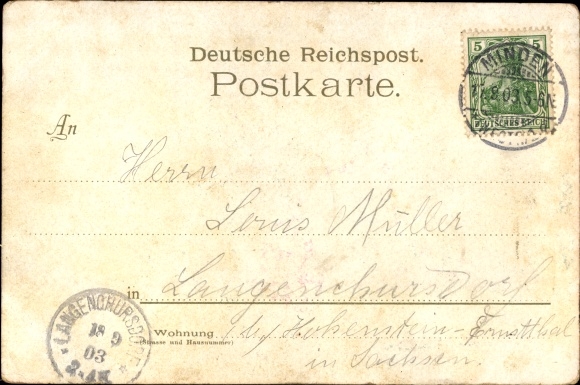 Deutsche Reichspost.
Postkarte.
5 5
MINDEN
8.03.5-6N
DEUTSCHES REICH
An
Herrn
Louis Müller
in Langenchursdorf
Wohnung
(Strasse und Hausnummer)
b/ Hohenstein-Ernstthal
in Sachsen.
* LANGENCHURSDORF *
18 9
03
2-4N